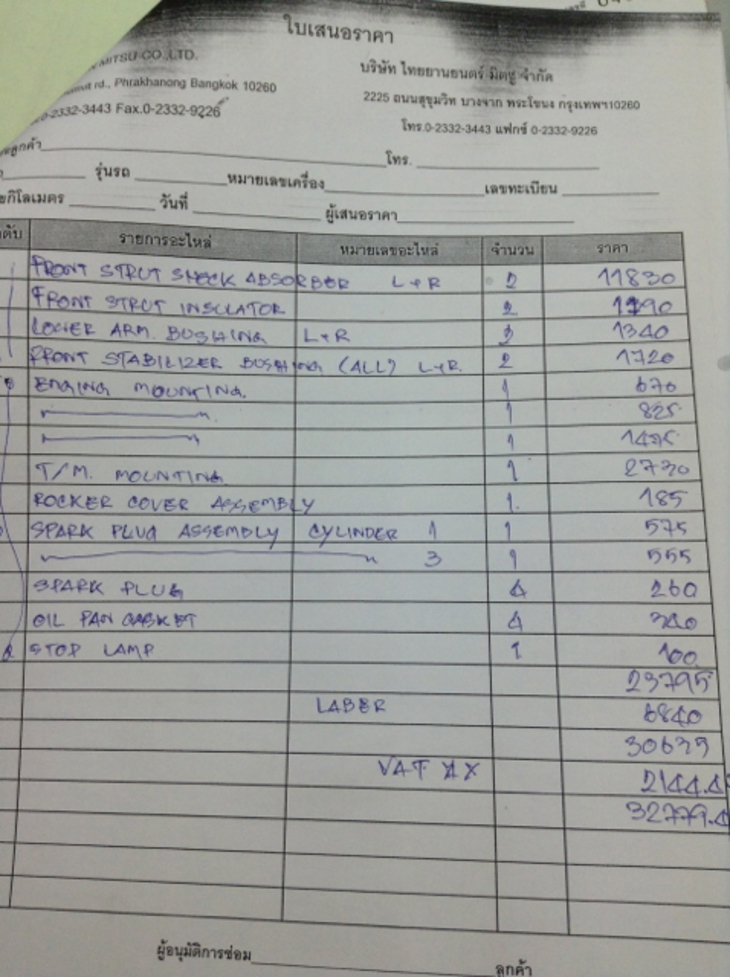 ใบเสนอราคา
MITSU CO.,LTD.
rd., Phrakhanong Bangkok 10260
0-2332-3443 Fax.0-2332-9226
บริษัท ไทยยานยนตร์ มิตซู จำกัด
2225 ถนนสุขุมวิท บางจาก พระโขนง กรุงเทพฯ10260
โทร.0-2332-3443 แฟกซ์ 0-2332-9226
ลูกค้า โทร.
รุ่นรถ หมายเลขเครื่อง เลขทะเบียน
กิโลเมตร วันที่ ผู้เสนอราคา
ดับ รายการอะไหล่ หมายเลขอะไหล่ จำนวน ราคา
FRONT STRUT SHECK ABSORBER L+R 2 11830
FRONT STRUT INSULATOR 2
LOWER ARM. BUSHING L+R 2 1340
FRONT STABILIZER BUSHING (ALL) L+R 2 1720
ENGING MOUNTING. 1 670
1 825
1
T/M. MOUNTING. 1 2730
ROCKER COVER ASSEMBLY 1. 185
SPARK PLUG ASSEMBLY CYLINDER 1 1 575
3 1 555
SPARK PLUG 4 260
OIL PAN GASKET 4 340
STOP LAMP 1 100
23795
LABER 6840
VAT 2144.4
32779.4
ผู้อนุมัติการซ่อม ลูกค้า